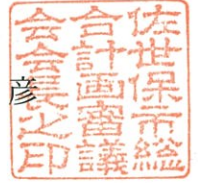 佐世保市総
合計画審議
会会長之印
彦